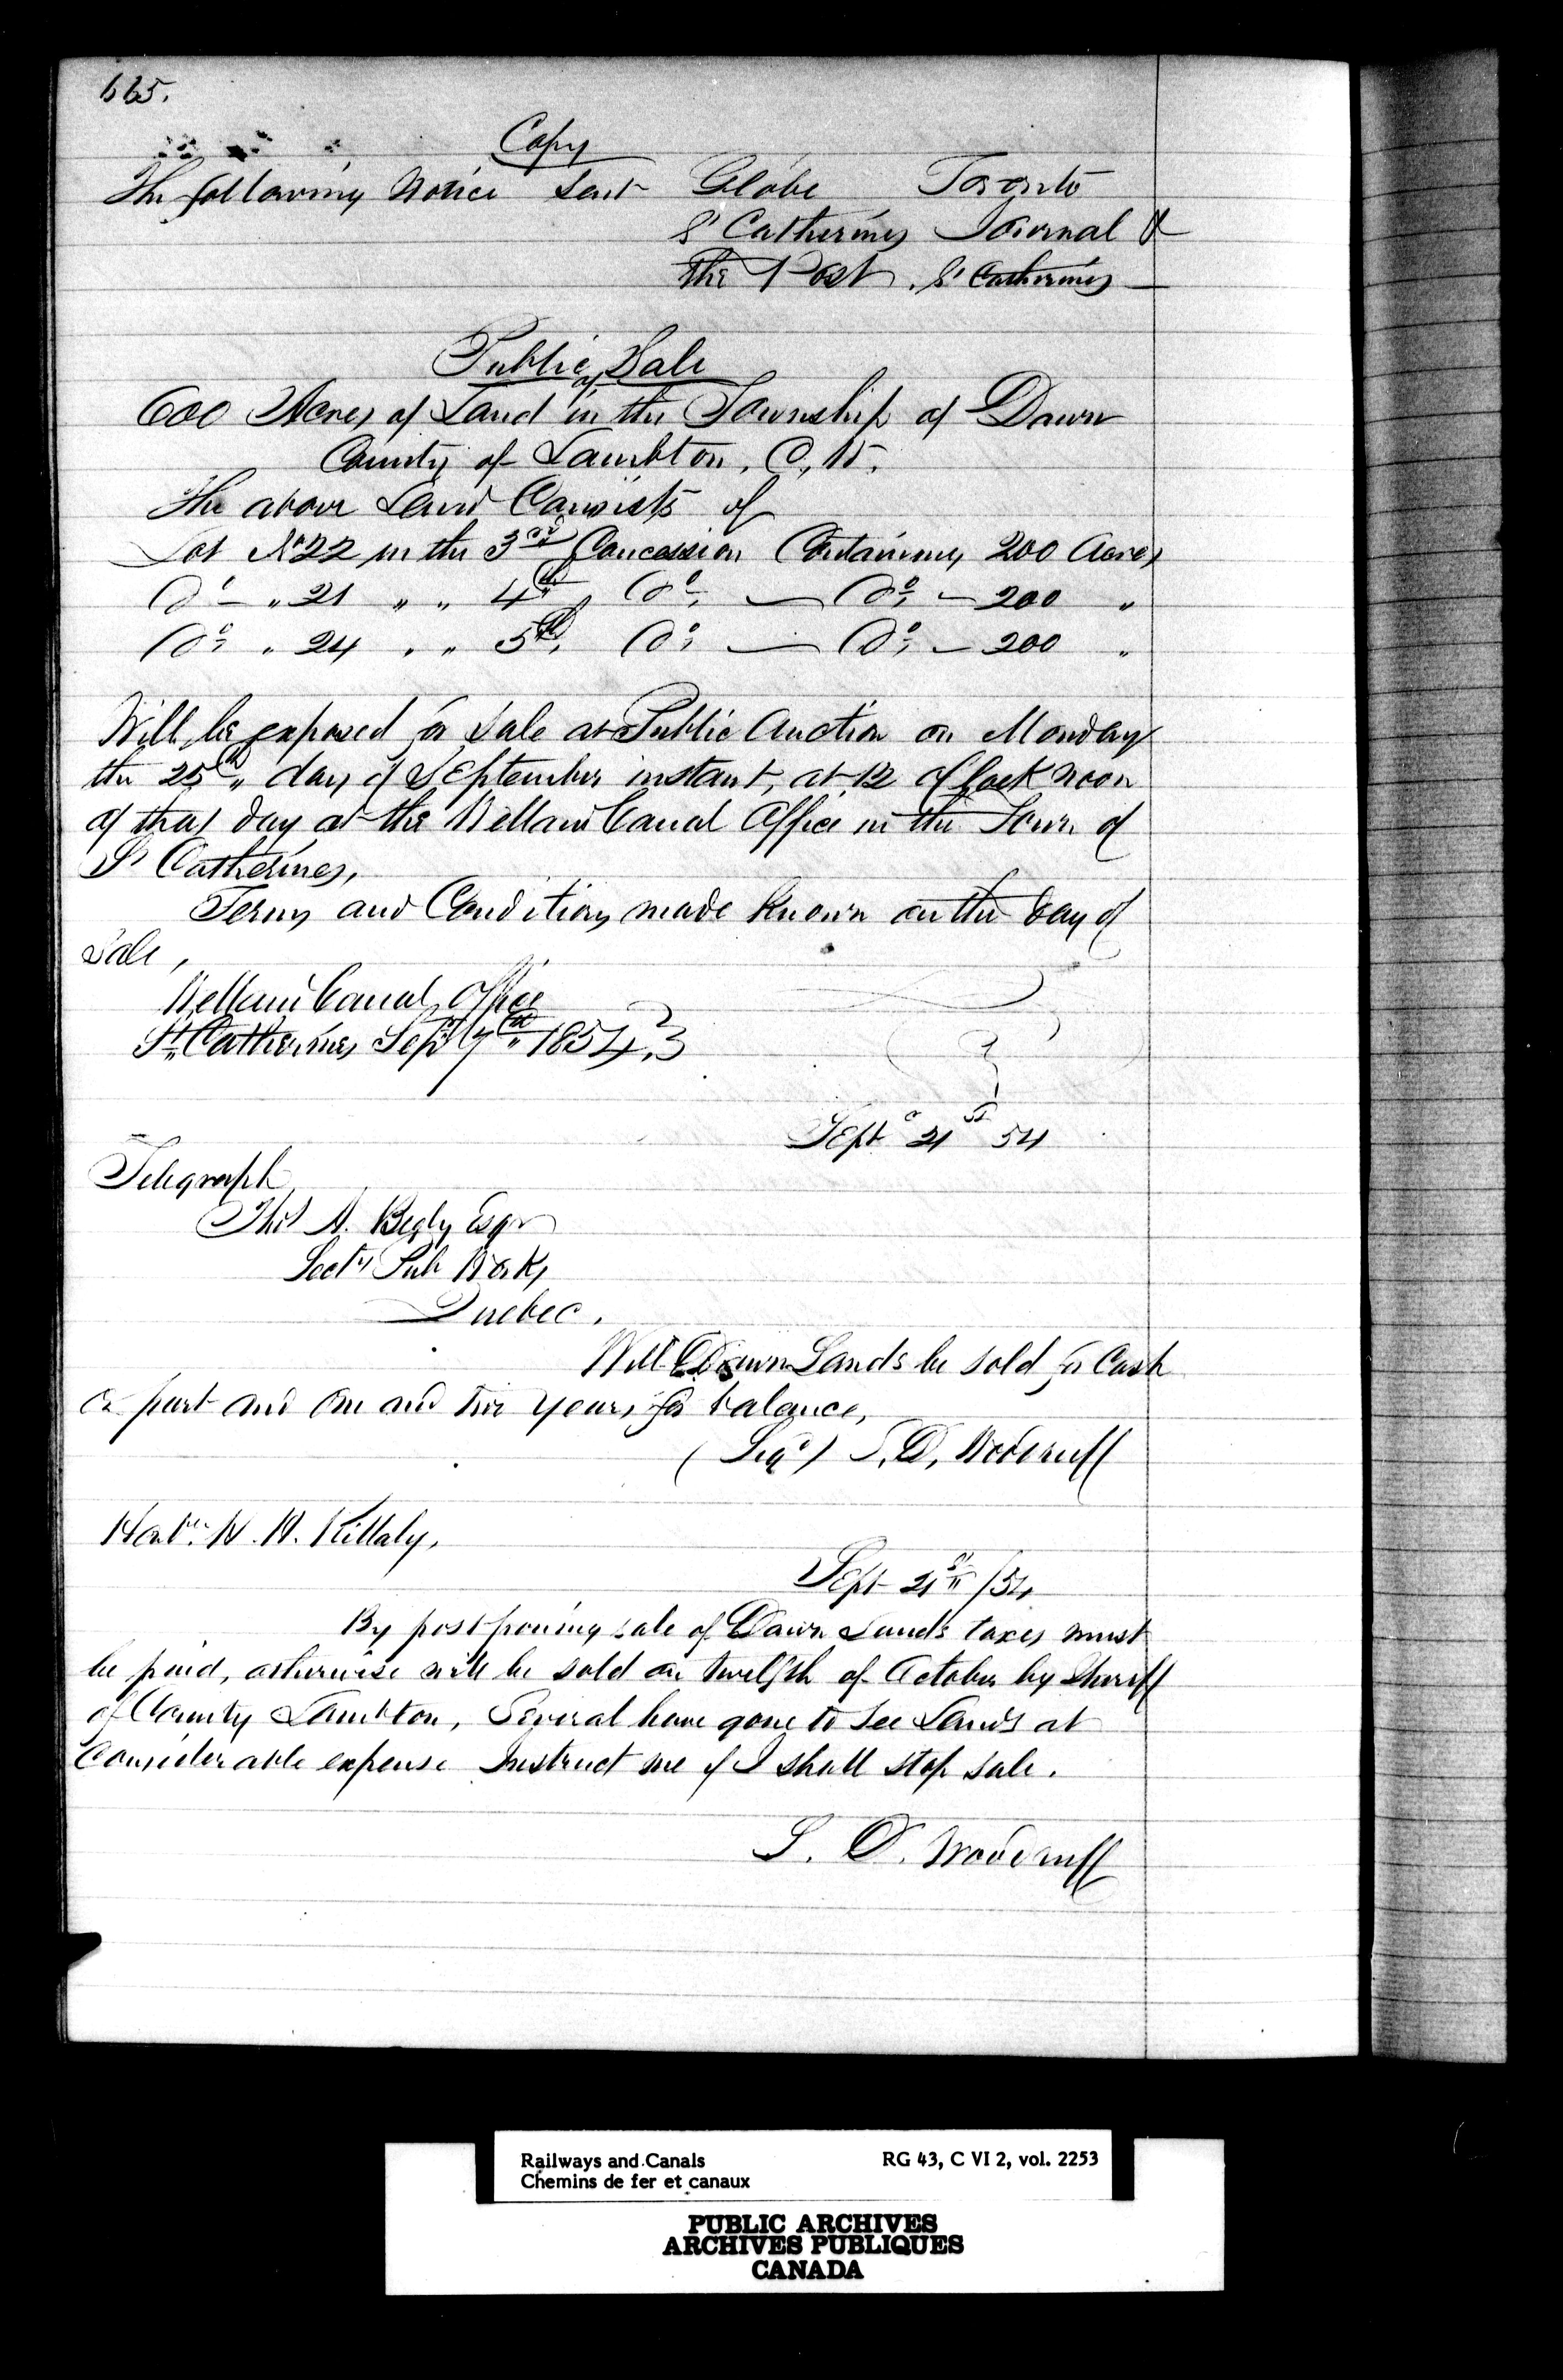 665.
Copy
The following Notice sent Globe Toronto
St Catherines Journal &
The Post, St Catherines
Public Sale
of
600 Acres of Land in the Township of Dawn
County of Lambton, C, W.
The above Land Consists of
Lot No 22 in the 3rd Concession Containing 200 Acres
Do " 21 " " 4th Do — Do — 200 "
Do " 24 " " 5th Do — Do — 200 "
Will be exposed for Sale at Public Auction on Monday
the 25th day of September instant, at 12 O'Clock noon
of that day at the Welland Canal Office in the Town of
St Catherines,
Terms and Conditions made known on the day of
Sale,
Welland Canal Office
St. Catherines Sept 7th 1854
Sept 21st 54
Telegraph
Thos A. Begly Esqr
Secty Pub Works
Quebec.
Will Dawn Lands be sold for Cash
or part and One and two years for balance,
(Sigd) S. D. Woodruff
Honble H. H. Killaly,
Sept 21st /54
By postponing sale of Dawn Lands taxes must
be paid, otherwise will be sold on twelfth of October by Sheriff
of County Lambton, Several have gone to see Lands at
Considerable expense Instruct me if I shall stop sale.
S. D. Woodruff
Railways and Canals RG 43, C VI 2, vol. 2253
Chemins de fer et canaux
PUBLIC ARCHIVES
ARCHIVES PUBLIQUES
CANADA